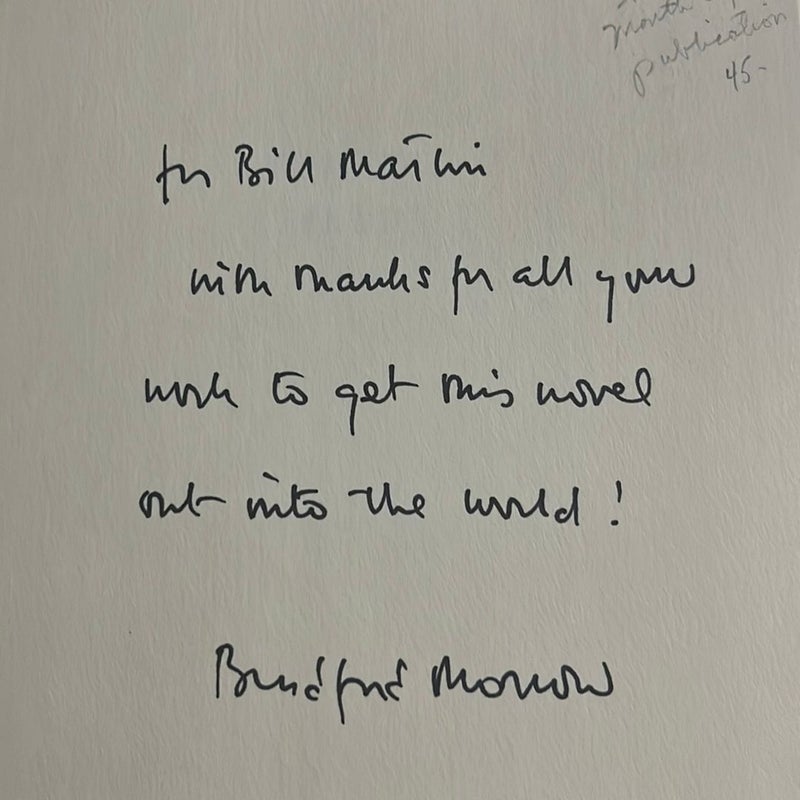 month
publication
45-
for Bill Martin
with thanks for all your
work to get this novel
out into the world!
Bradford Morrow